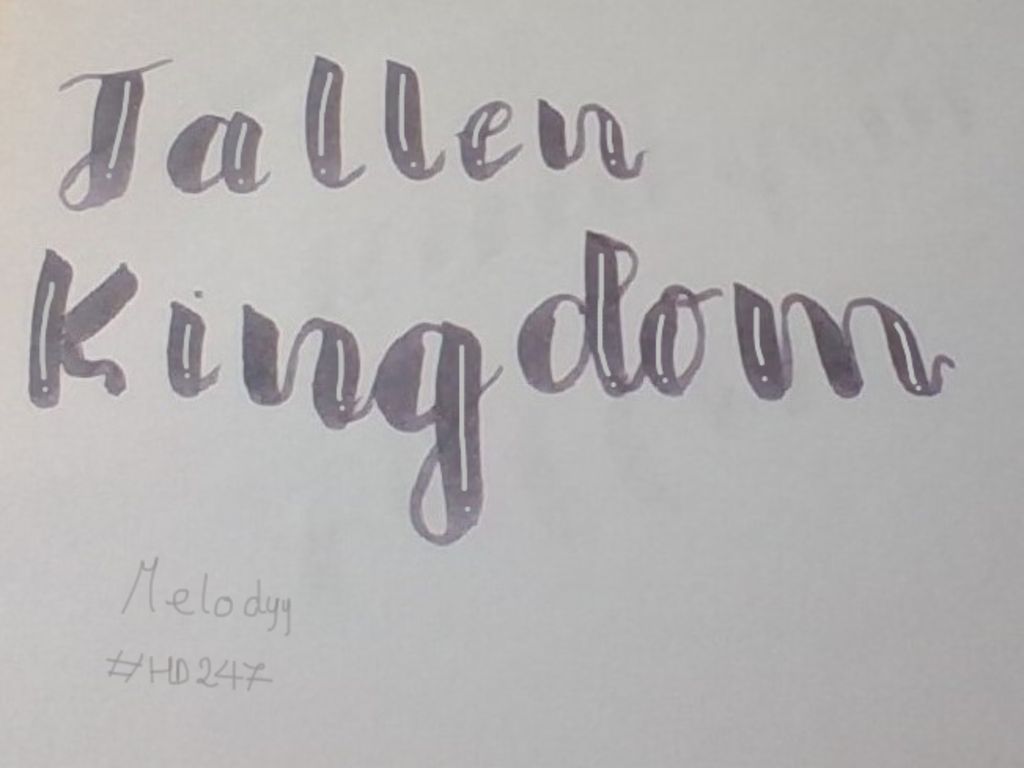 Jallen
Kingdom
Melodyy
#HD247